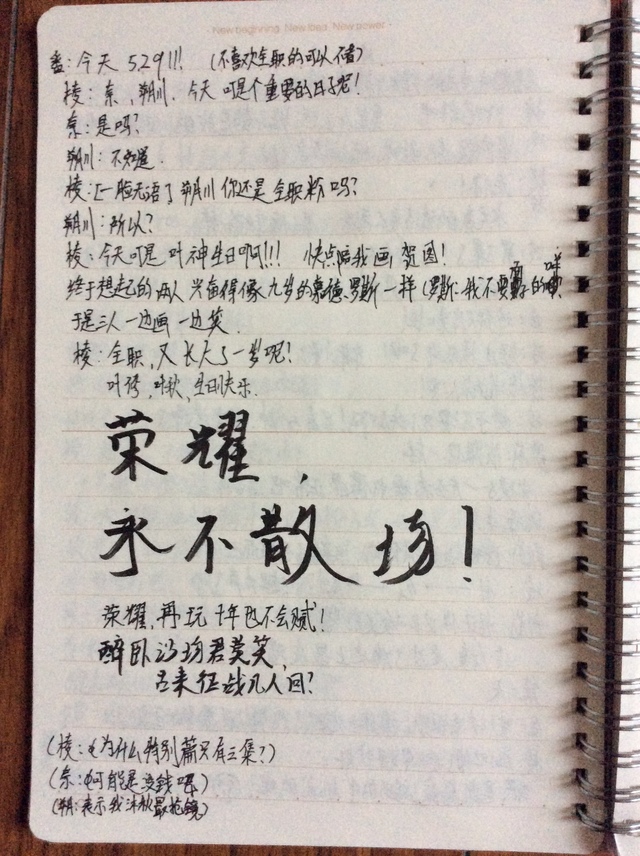 New beginning. New idea. New power.
今天 5.29!!! (不喜欢全职的可以不看)
棱:奈、朔川.今天可是个重要的日子呢!
奈:是吗?
朔川:不知道.
棱:[一脸无语了 朔川你还是全职粉吗?
朔川:所以?
棱:今天可是叶神生日啊!!! 快点陪我画贺图!
终于想起的两人兴奋得像九岁的 罗斯一样(罗斯:我不要 的
于是三人一边画一边笑.
棱:全职,又长大了一岁呢!
叶修,叶秋,生日快乐.
荣耀,
永不散场!
荣耀,再玩十年也不会腻!
醉卧沙场君莫笑,
古来征战几人回?
(棱:为什么特别篇只有三集?)
(奈:可能是没钱吧)
(朔:表示我沐秋最抢镜)